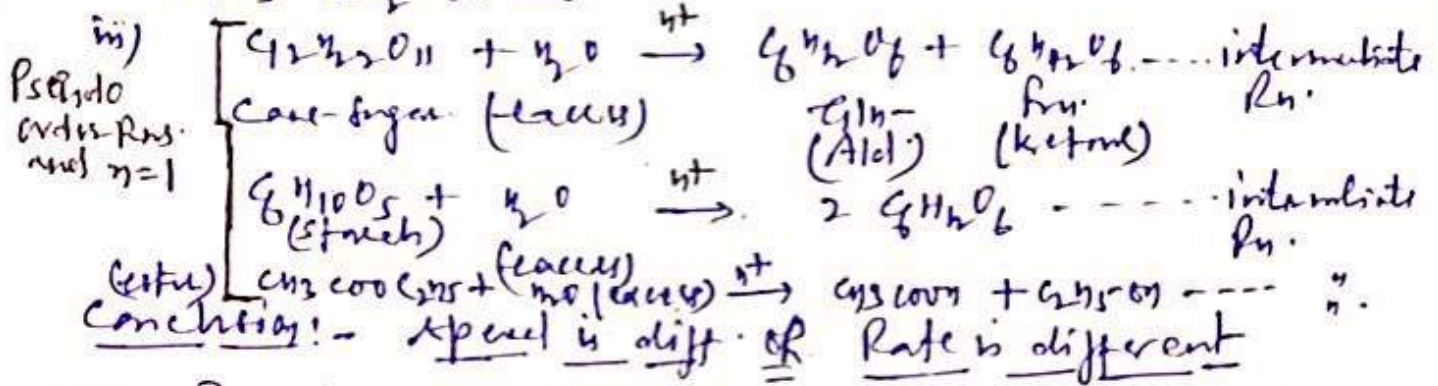 iii) C12H22O11 + H2O H+→ C6H12O6 + C6H12O6 ---- intermediate Rn.
Pseudo order Rns. and n=1
Cane-sugar (excess) Glu- (Ald.) Fru. (Ketone)
C6H10O5 + H2O H+→ 2 C6H12O6 ------ intermediate Rn.
(Starch) (excess)
(ester) CH3COOC2H5 + H2O (excess) H+→ CH3COOH + C2H5-OH ---- " ".
Conclusion:- speed is diff. or Rate is different